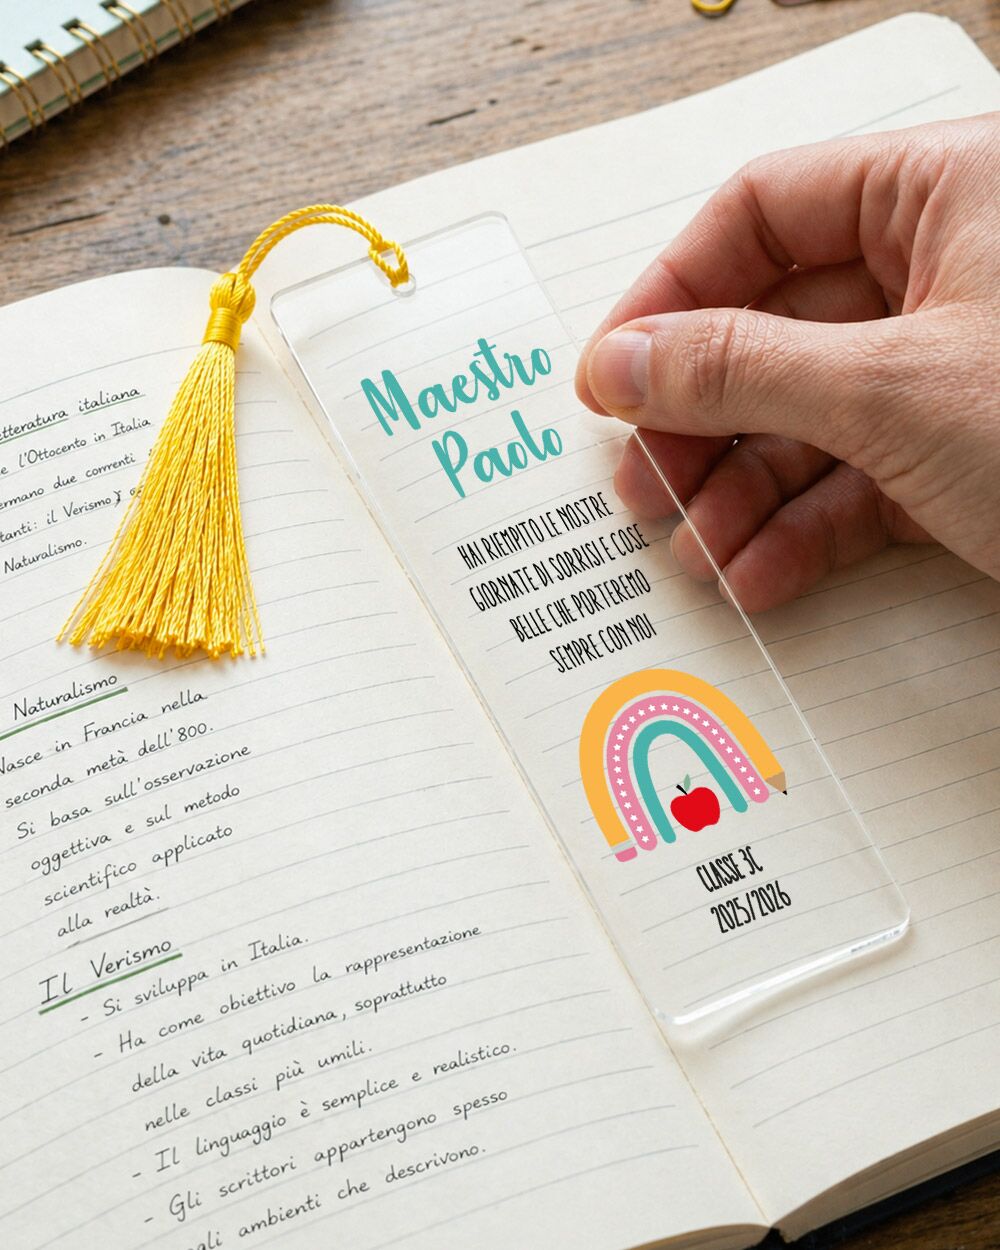 Maestro
Paolo
HAI RIEMPITO LE NOSTRE
GIORNATE DI SORRISI E COSE
BELLE CHE PORTEREMO
SEMPRE CON NOI
CLASSE 3C
2025/2026
italiana
e l'Ottocento in Italia
due correnti
il Verismo
Naturalismo.
Naturalismo
Nasce in Francia nella
seconda metà dell'800.
Si basa sull'osservazione
oggettiva e sul metodo
scientifico applicato
alla realtà.
Il Verismo
- Si sviluppa in Italia.
- Ha come obiettivo la rappresentazione
della vita quotidiana, soprattutto
nelle classi più umili.
- Il linguaggio è semplice e realistico.
- Gli scrittori appartengono spesso
ambienti che descrivono.